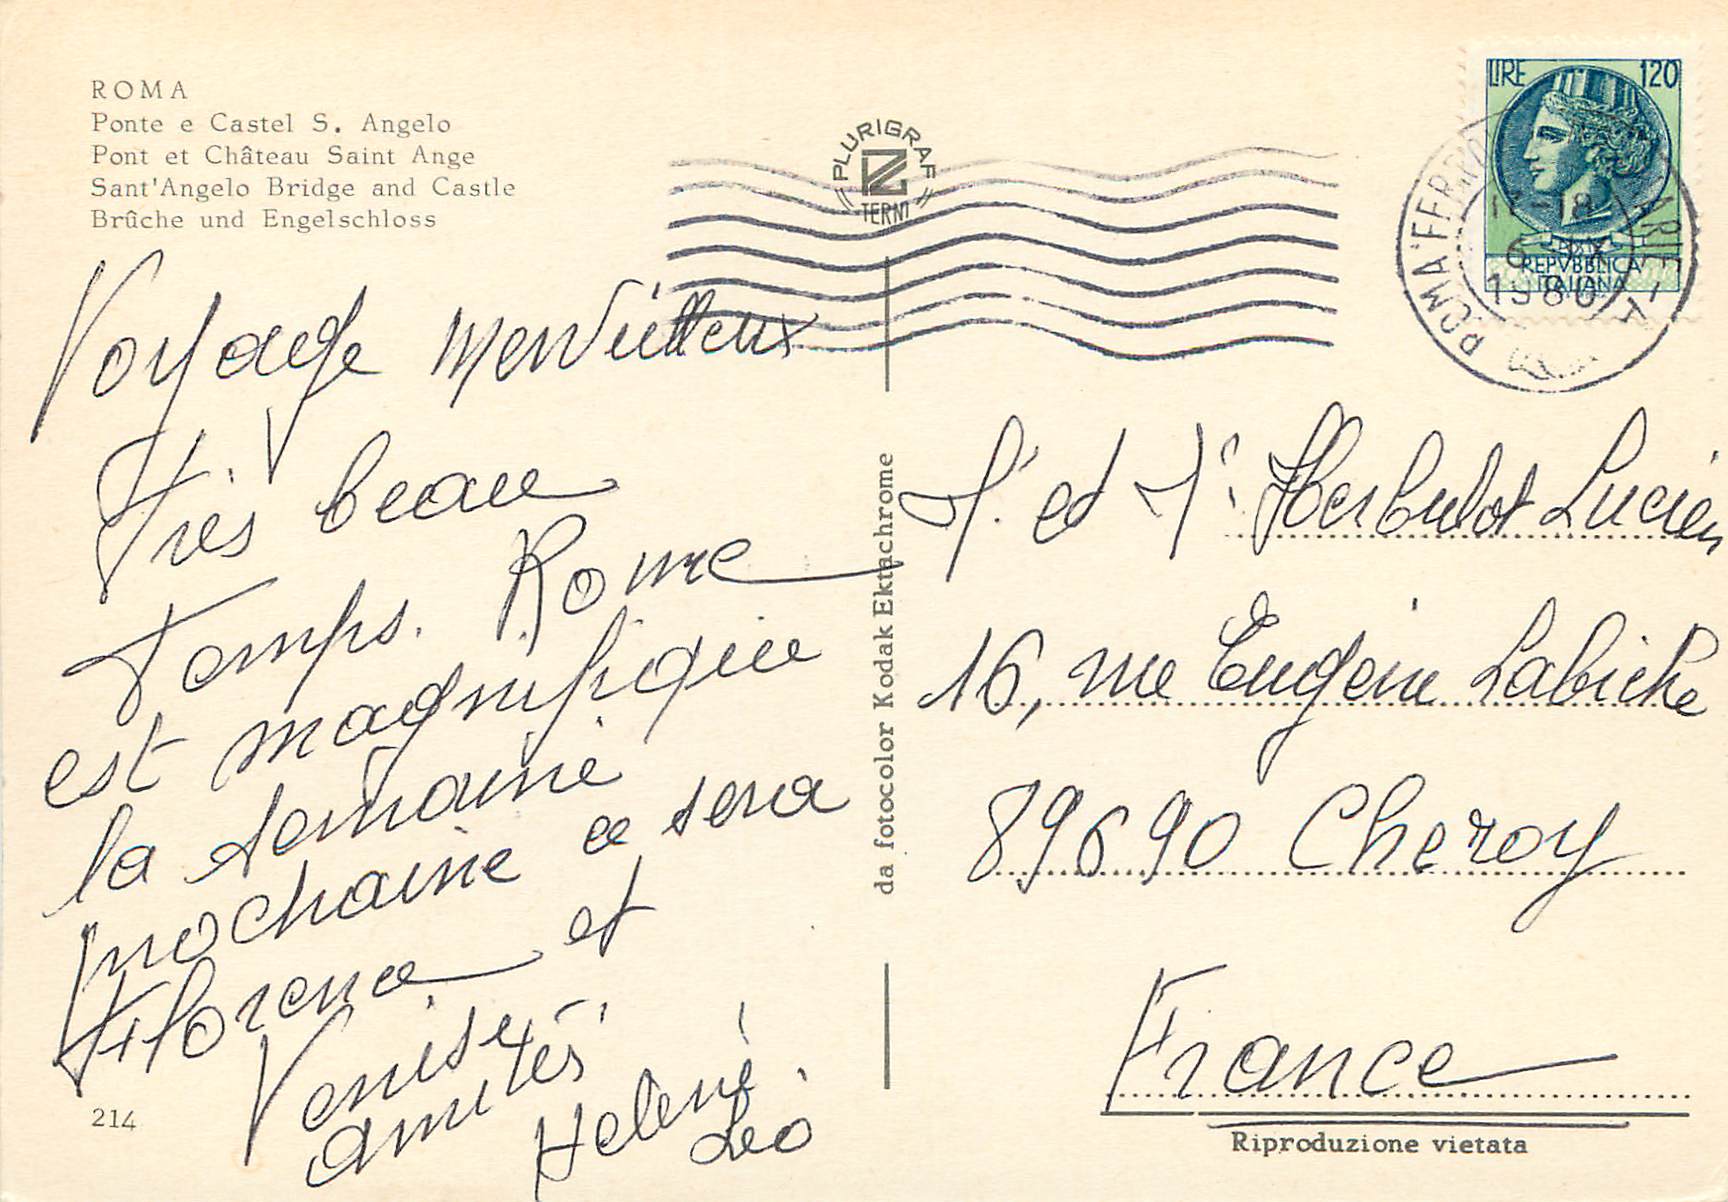 ROMA
Ponte e Castel S. Angelo
Pont et Château Saint Ange
Sant'Angelo Bridge and Castle
Brûche und Engelschloss
PLURIGRAF
TERNI
LIRE 120
REPVBBLICA
ITALIANA
ROMA FERRO
17-18
6
1980
Voyage merveilleux
très beau
temps. Rome
est magnifique
la semaine
prochaine ce sera
Florence et
Venise
amitiés
Helene
Leo
214
da fotocolor Kodak Ektachrome
et Herbulot Lucien
16, rue Eugene Labiche
89690 Cheroy
France
Riproduzione vietata